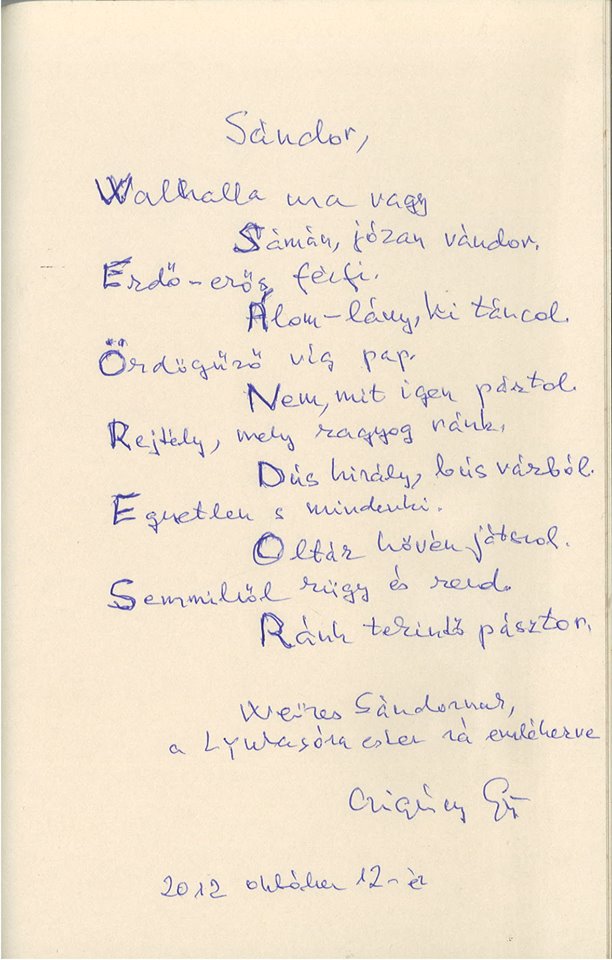 Sándor,
Walhalla ura vagy
Sámán, józan vándor.
Erdő-erős férfi.
Álom-lány, ki táncol.
Ördögűző víg pap.
Nem, mit igen pártol.
Rejtély, mely ragyog ránk.
Dús király, bús várból.
Egyetlen s mindenki.
Oltár kövén játszol.
Semmiből rügy és rend.
Ránk tekintő pásztor.
Weöres Sándornak,
a Lyukasóra esten rá emlékezve
Czigány Gy
2012 október 12-én